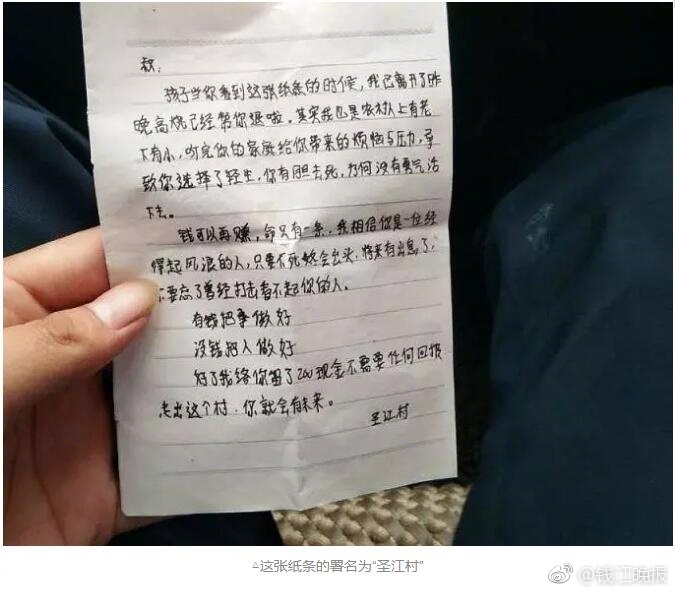 孩子当你看到这张纸条的时候，我已离开了昨
晚高烧已经帮你退啦。其实我也是农村人上有老
下有小，听完你的家族给你带来的烦恼与压力，导
致你选择了轻生，你有胆去死，为何没有勇气活
下去。
钱可以再赚，命只有一条，我相信你是一位经
得起风浪的人，只要不死终会出头，将来有出息了，
不要忘了曾经打击看不起你的人。
有钱把事做好
没钱把人做好
对了我给你留了200现金不需要任何回报
走出这个村，你就会有未来。
圣江村
△这张纸条的署名为“圣江村”
@钱江晚报